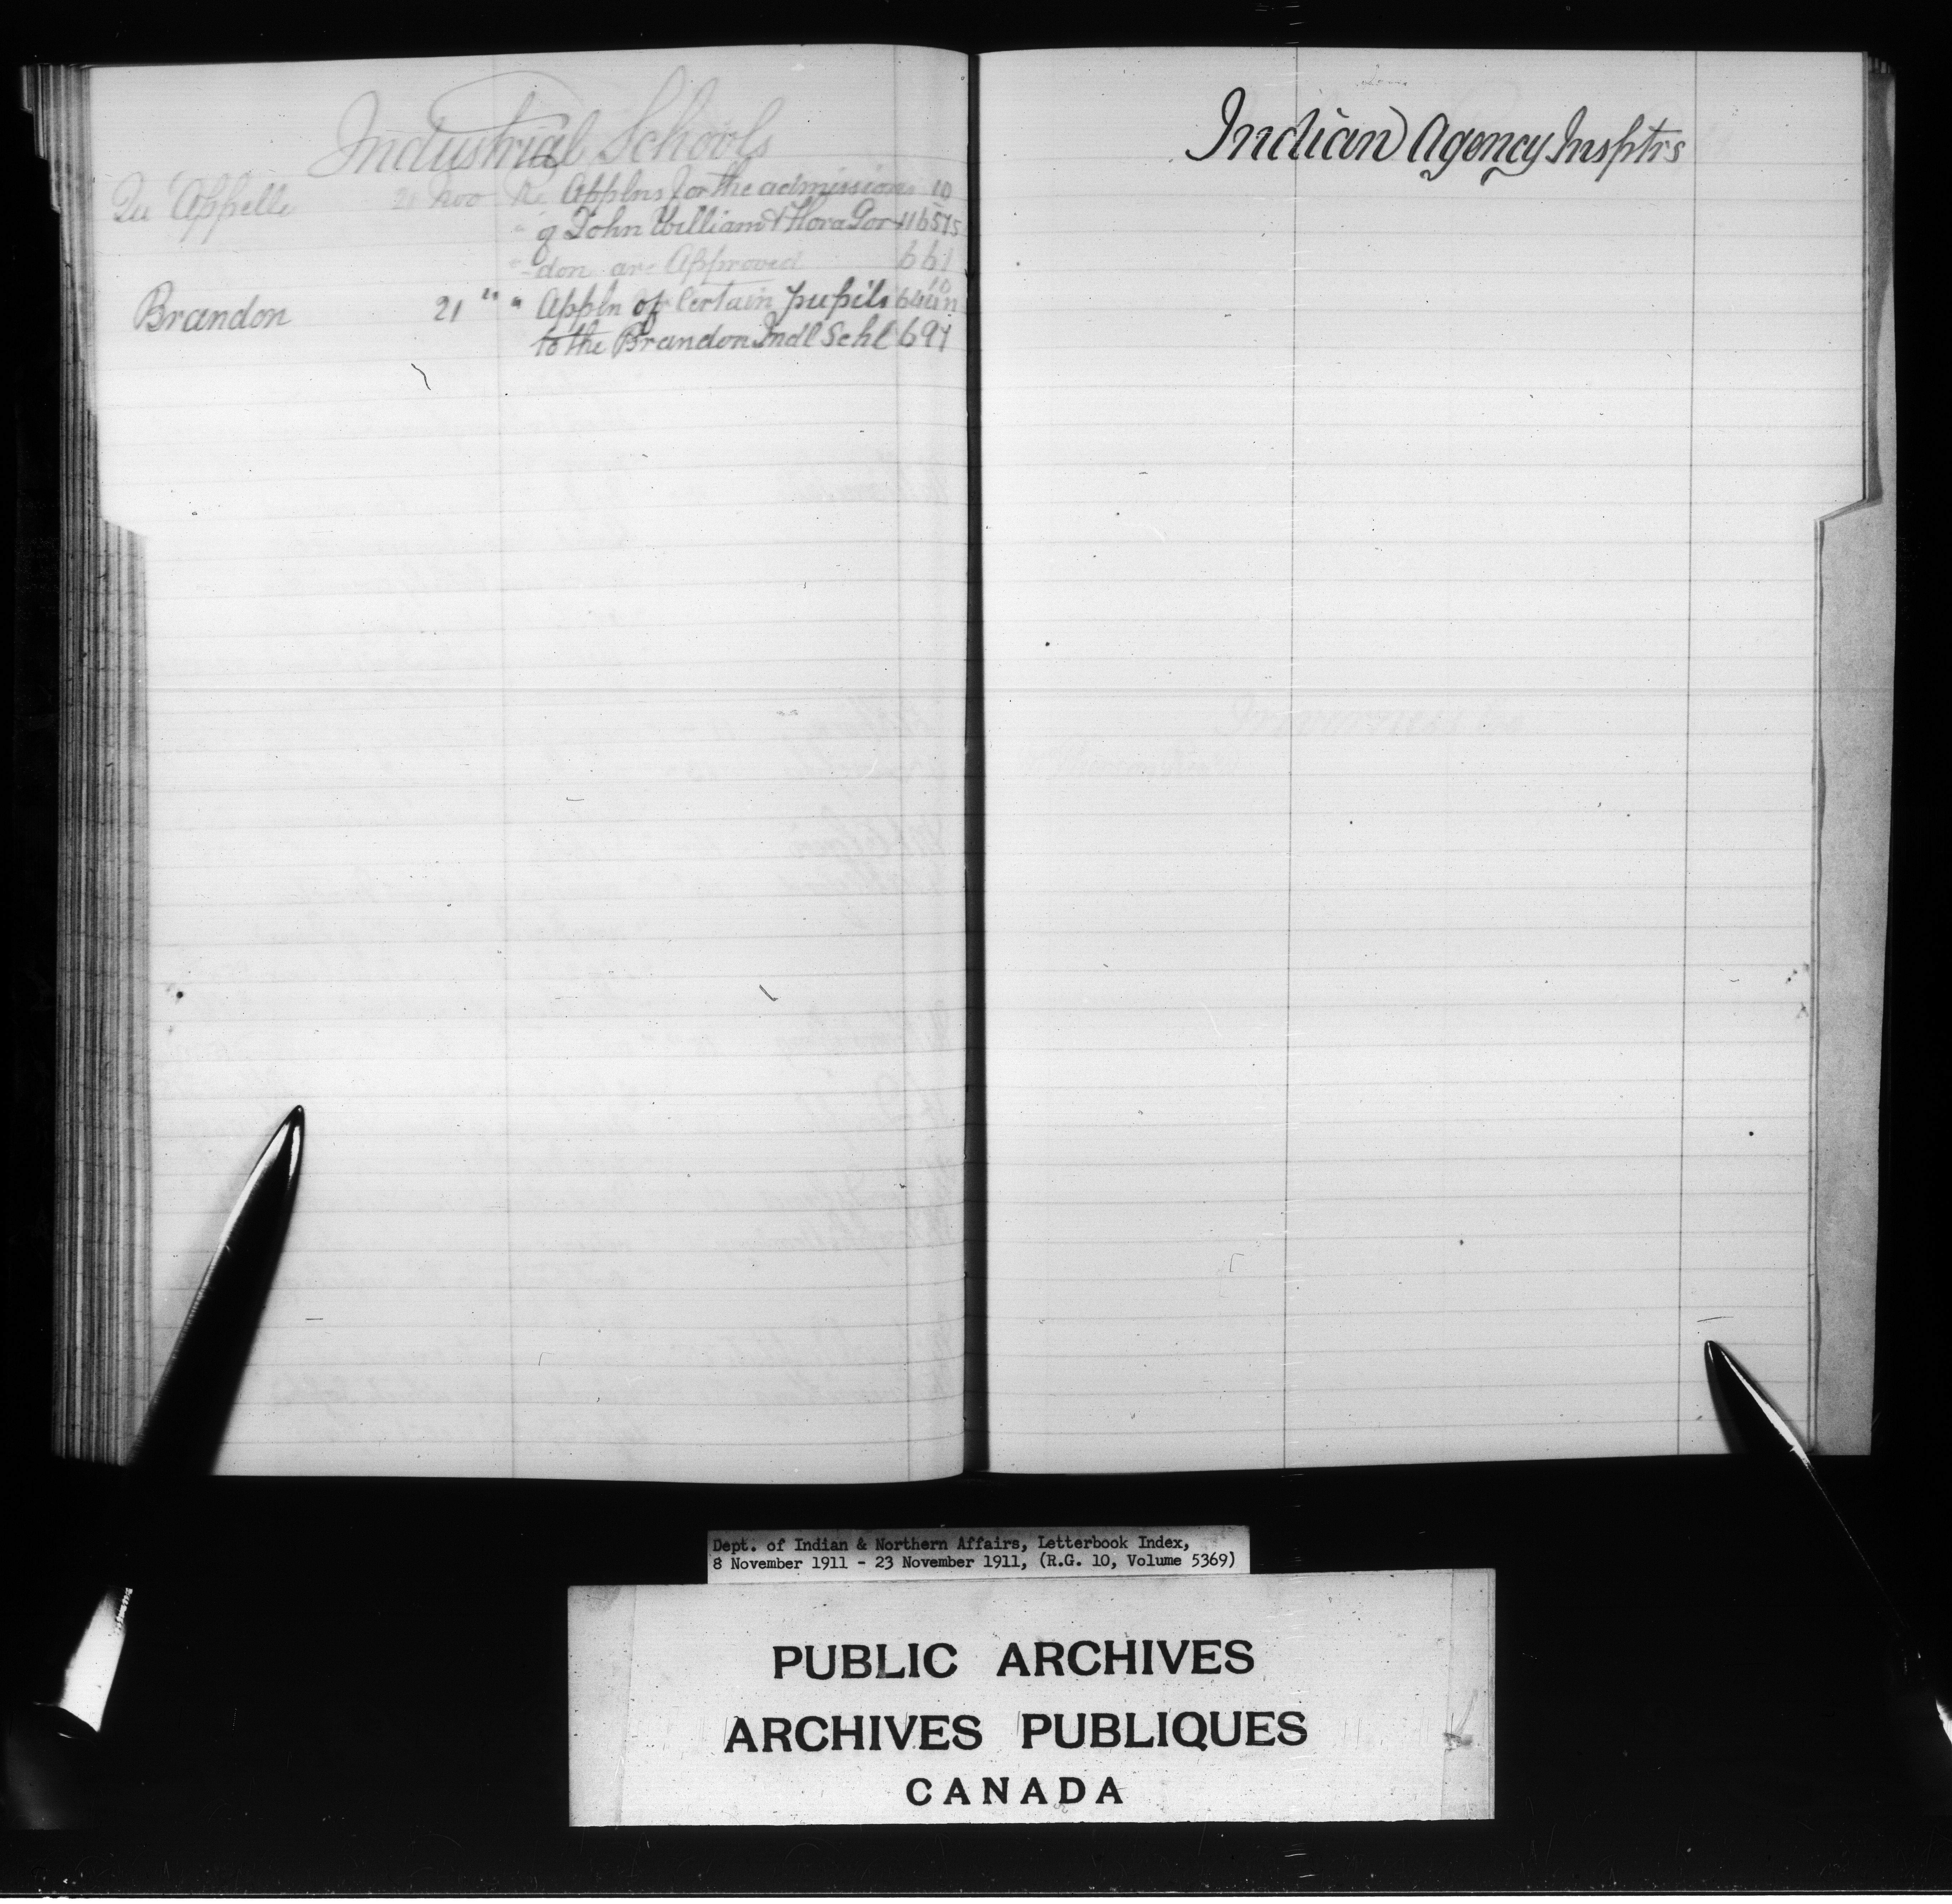 Industrial Schools
Qu'Appelle 21 Nov Re Applns for the admission 10
" of John William & Flora Gor-
"-don are Approved 661
Brandon 21 " " Appln of Certain pupils
to the Brandon Indl Schl 697
Indian Agency Insptrs
Dept. of Indian & Northern Affairs, Letterbook Index,
8 November 1911 - 23 November 1911, (R.G. 10, Volume 5369)
PUBLIC ARCHIVES
ARCHIVES PUBLIQUES
CANADA